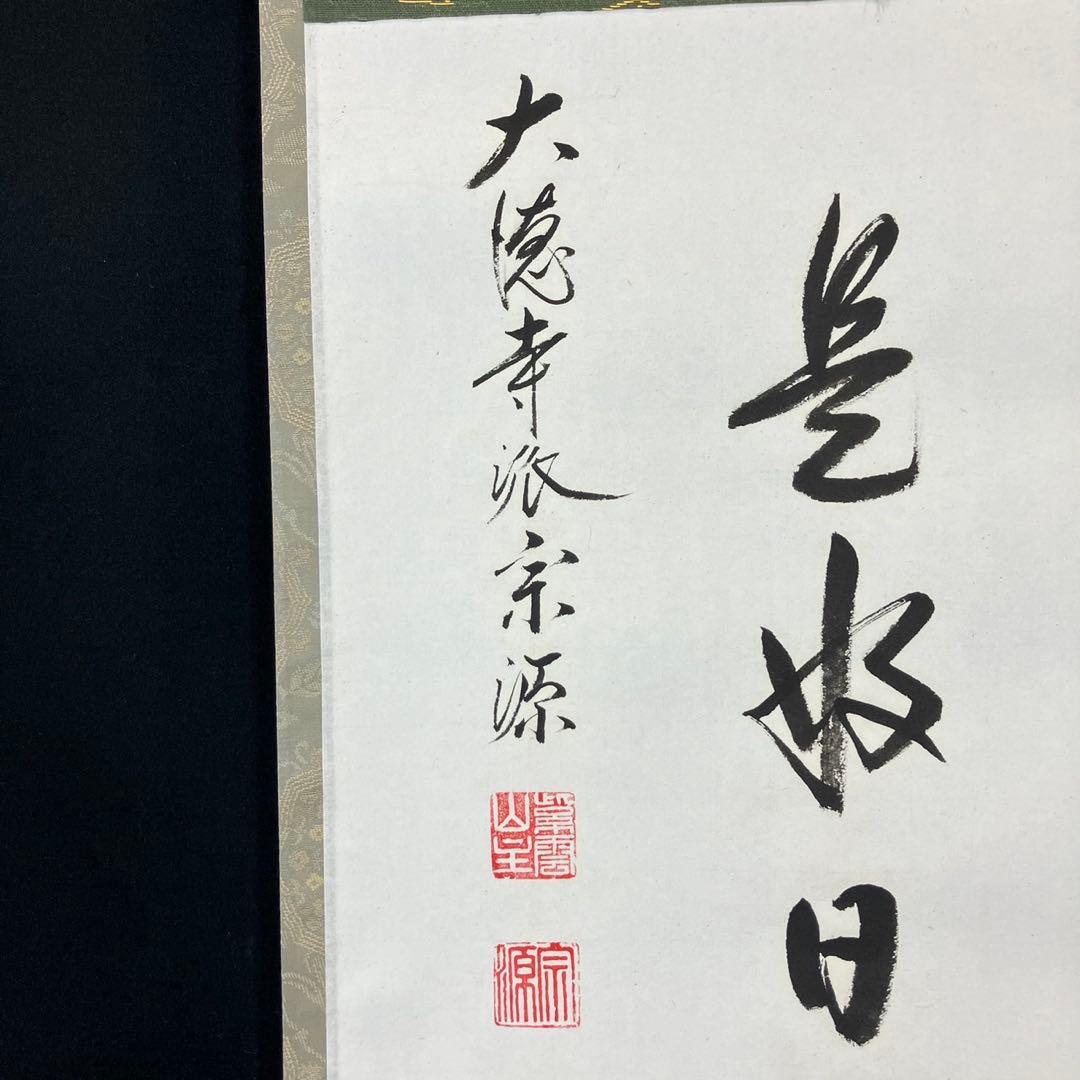 是好日
大徳寺派宗源
宗源